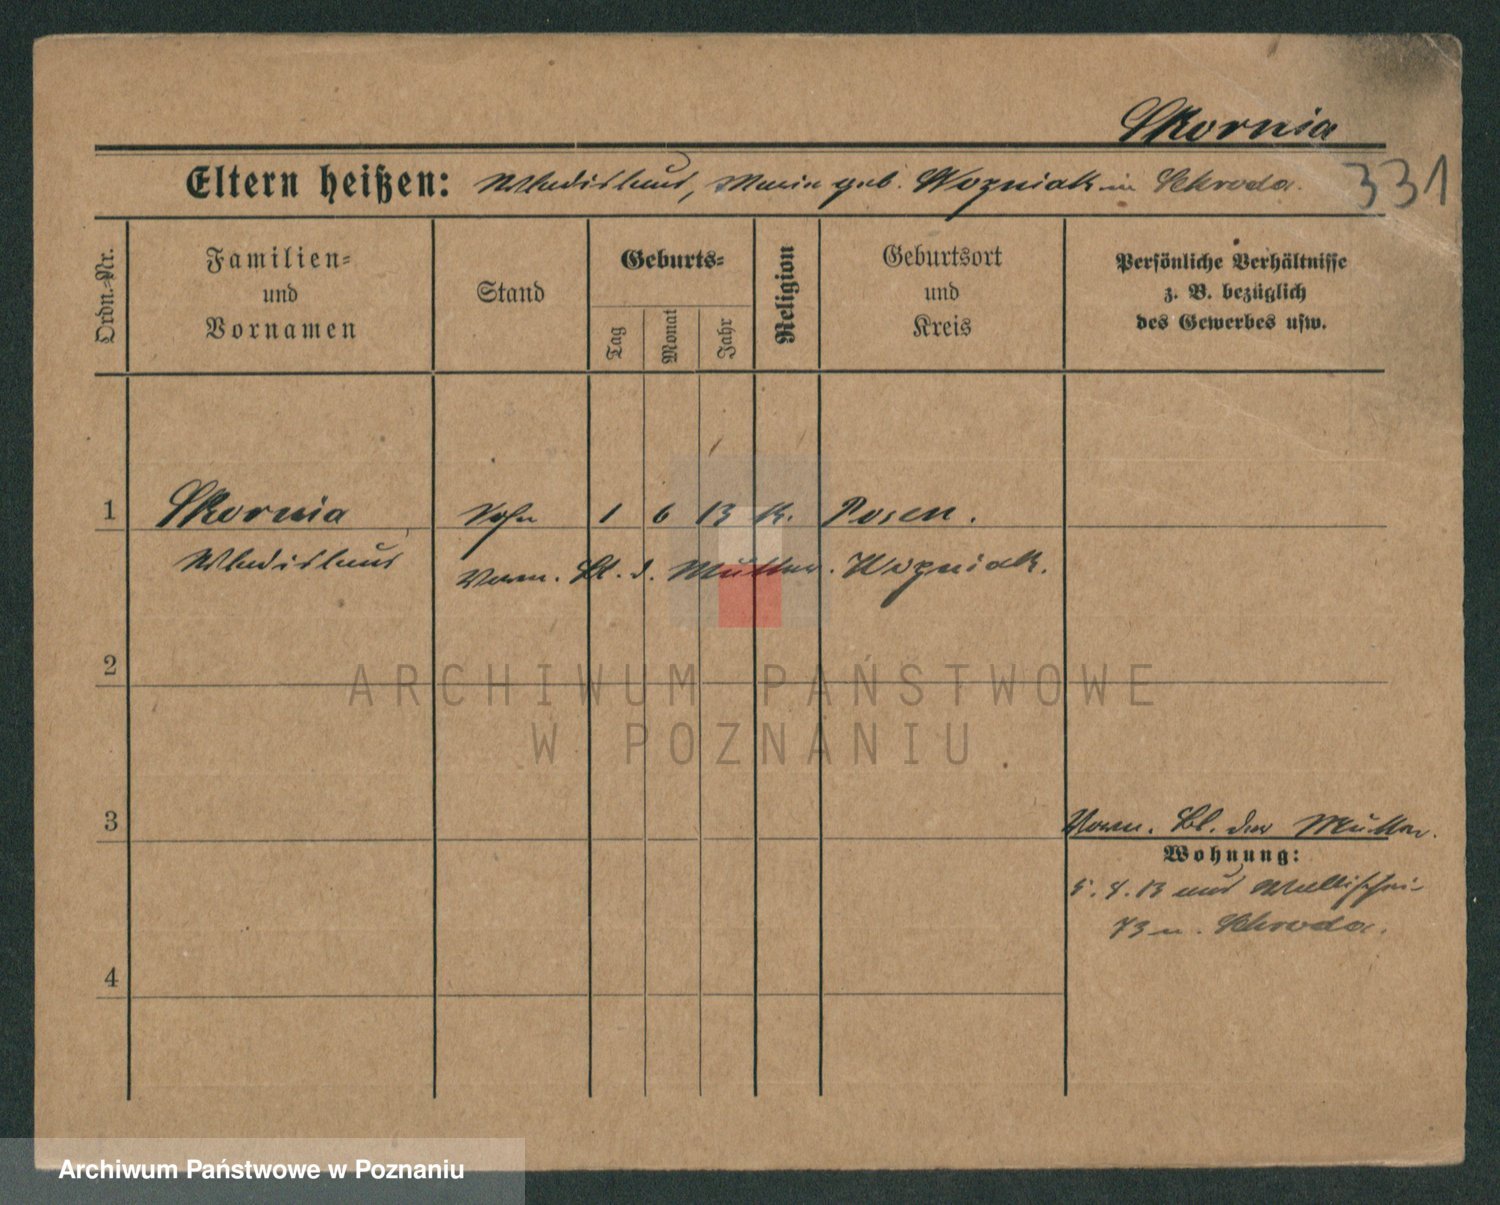 Skornia
Eltern heißen: Wladislaus, Maria geb. Wozniak in Schroda.
331
Ordn.-Nr.
Familien-
und
Vornamen
Stand
Geburts-
Tag
Monat
Jahr
Religion
Geburtsort
und
Kreis
Persönliche Verhältnisse
z. B. bezüglich
des Gewerbes usw.
1 Skornia Sohn 1 6 13 k. Posen.
Wladislaus Verm. Bl. d. Mutter. Wozniak.
2
ARCHIWUM PAŃSTWOWE
W POZNANIU
3
Verm. Bl. der Mutter.
Wohnung:
5. 7. 13 aus Wallischei
73 n. Schroda.
4
Archiwum Państwowe w Poznaniu